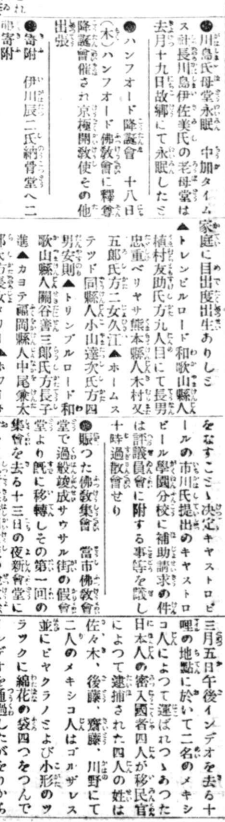 ●川島氏母堂永眠　中加タイム
ス社長川島伊佐美氏の老母堂は
去月十九日故郷にて永眠したと
●ハンフオード降誕會　十八日
(木)ハンフオード佛敎會に釋尊
降誕會催され京極開敎使その他
出張
●寄附　伊川辰二氏納骨堂へ二
寄附
家庭に目出度出生ありしと
▲トレンビルロード和歌山縣人
植村友助氏方九人目にて長男
忠重ベリヤサ熊本縣人木村又
五郎氏方二女久江▲ホームス
テツド同縣人小山達次氏方四
男安則▲トリンブルロード和
歌山縣人關谷善三郎氏方長子
進▲カヨテ福岡縣人中尾兼太
をなすことゝ決定キヤストロビ
ールの市川氏提出のキヤストロ
ビール學園分校に補助請求の件
は評議員會に附する事等を議し
十時過散會せり
●賑つた佛敎集會　當市佛敎會
堂で過般竣成サウサル街の假會
堂より既に移轉しその第一回の
集會を去る十三日の夜新會堂に
三月五日午後インデオを去る十
哩の地點に於いて二名のメキシ
コ人によつて運ばれつゝあつた
日本人の密入國者四人が移民官
によつて逮捕された四人の姓は
佐々木、後藤、齋藤、川野にて
二人のメキシコ人はゴルザレス
並にビヤクラノとよび小形のツ
ラツクに綿花の袋四つをつんで
ンデオを通過したが